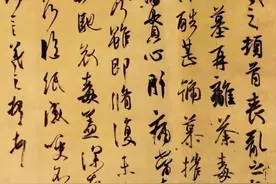 之頓首喪亂之
墓再離荼毒
酷甚號慕摧
貫心肝痛當
雖即脩復未
馳哀毒益深奈
臨紙感哽不
羲之頓首